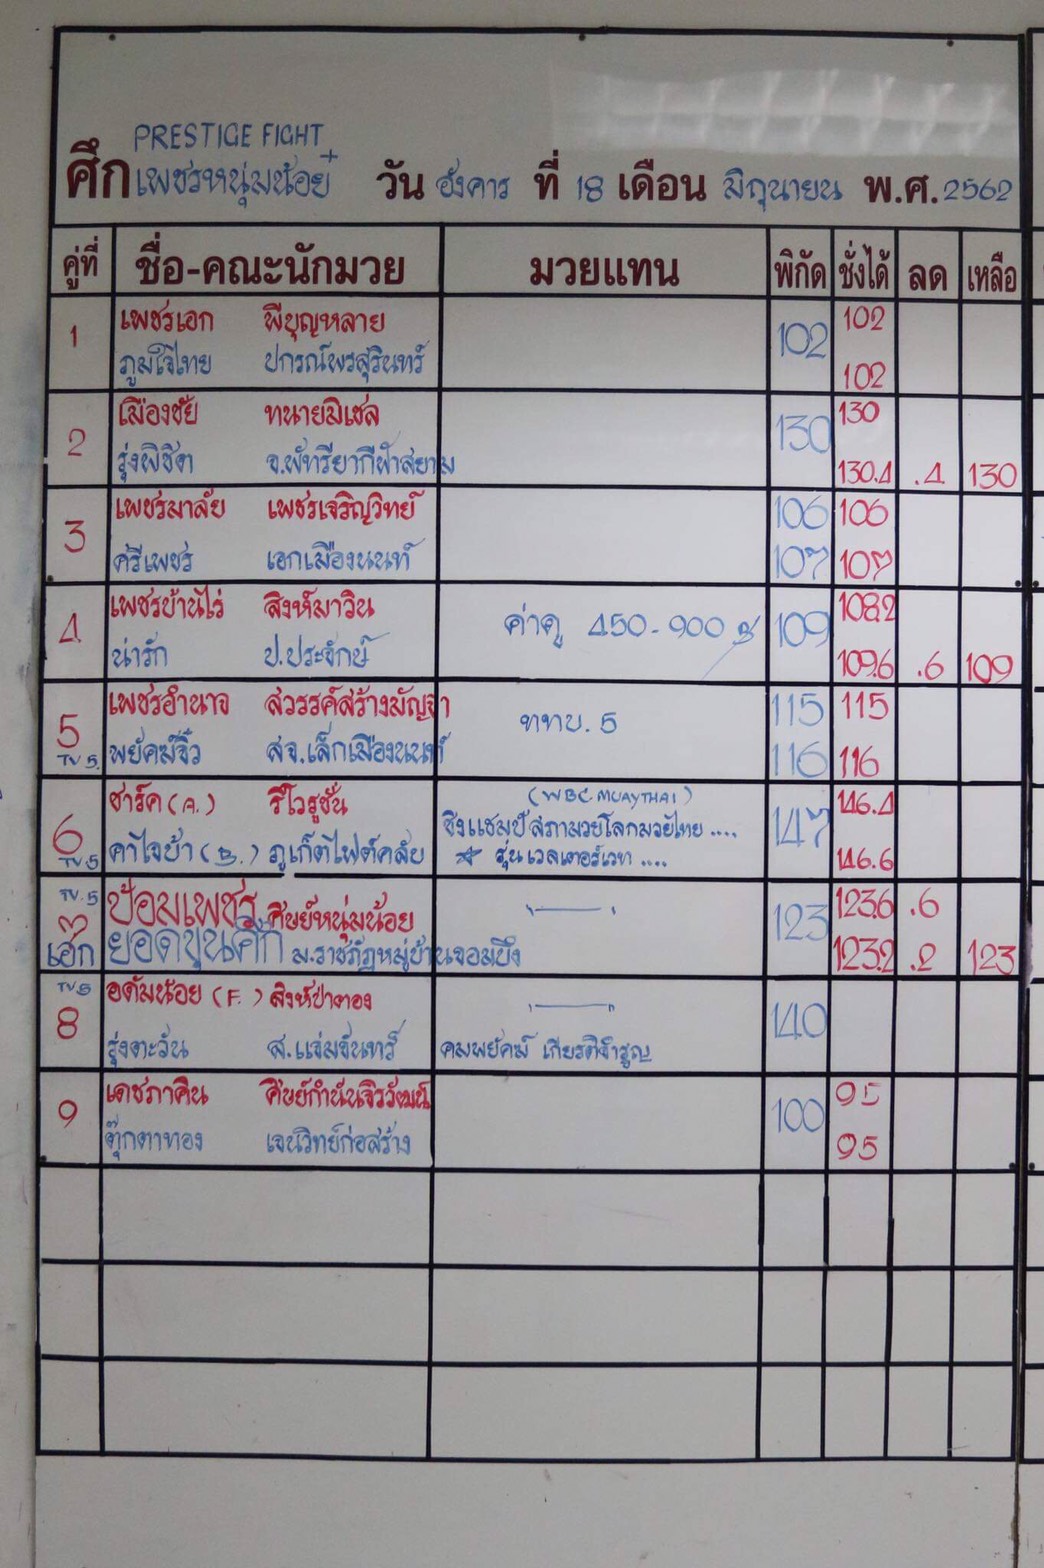 PRESTIGE FIGHT
ศึก เพชรหนุ่มน้อย + วัน อังคาร ที่ 18 เดือน มิถุนายน พ.ศ. 2562
คู่ที่ ชื่อ-คณะนักมวย มวยแทน พิกัด ชั่งได้ ลด เหลือ
1 เพชรเอก พีบุญหลาย 102 102
ภูมิใจไทย ปกรณ์พรสุรินทร์ 102
2 เมืองชัย ทนายมิเชล 130 130
รุ่งพิชิต จ.พัทรียากีฬาสยาม 130.4 .4 130
3 เพชรมาลัย เพชรเจริญวิทย์ 106 106
ศรีเพชร เอกเมืองนนท์ 107 107
4 เพชรบ้านไร่ สิงห์มาวิน ค่าดู 450-900 109 108.2
น่ารัก ป.ประจักษ์ 109.6 .6 109
5 เพชรอำนาจ สวรรค์สร้างมัญจา ททบ. 5 115 115
TV 5 พยัคฆ์จิ๋ว สจ.เล็กเมืองนนท์ 116 116
6 ชาร์ค (A.) รีโวรูชั่น (WBC MUAYTHAI) 147 146.4
ชิงแชมป์สภามวยโลกมวยไทย ....
TV 5 คาไจย้า (B.) ภูเก็ตไฟต์คลับ ☆ รุ่นเวลเตอร์เวท .... 146.6
TV. 5 ป้อมเพชร ศิษย์หนุ่มน้อย 123 123.6 .6
เอก ยอดขุนศึก ม.ราชภัฏหมู่บ้านจอมบึง 123.2 .2 123
TV 5 อดัมน้อย (F.) สิงห์ป่าตอง 140
8 รุ่งตะวัน ส.แจ่มจันทร์ คมพยัคฆ์ เกียรติจำรูญ
9 เดชภาคิน ศิษย์กำนันจิวัฒน์ 100 95
ตุ๊กตาทอง เจนวิทย์ก่อสร้าง 95